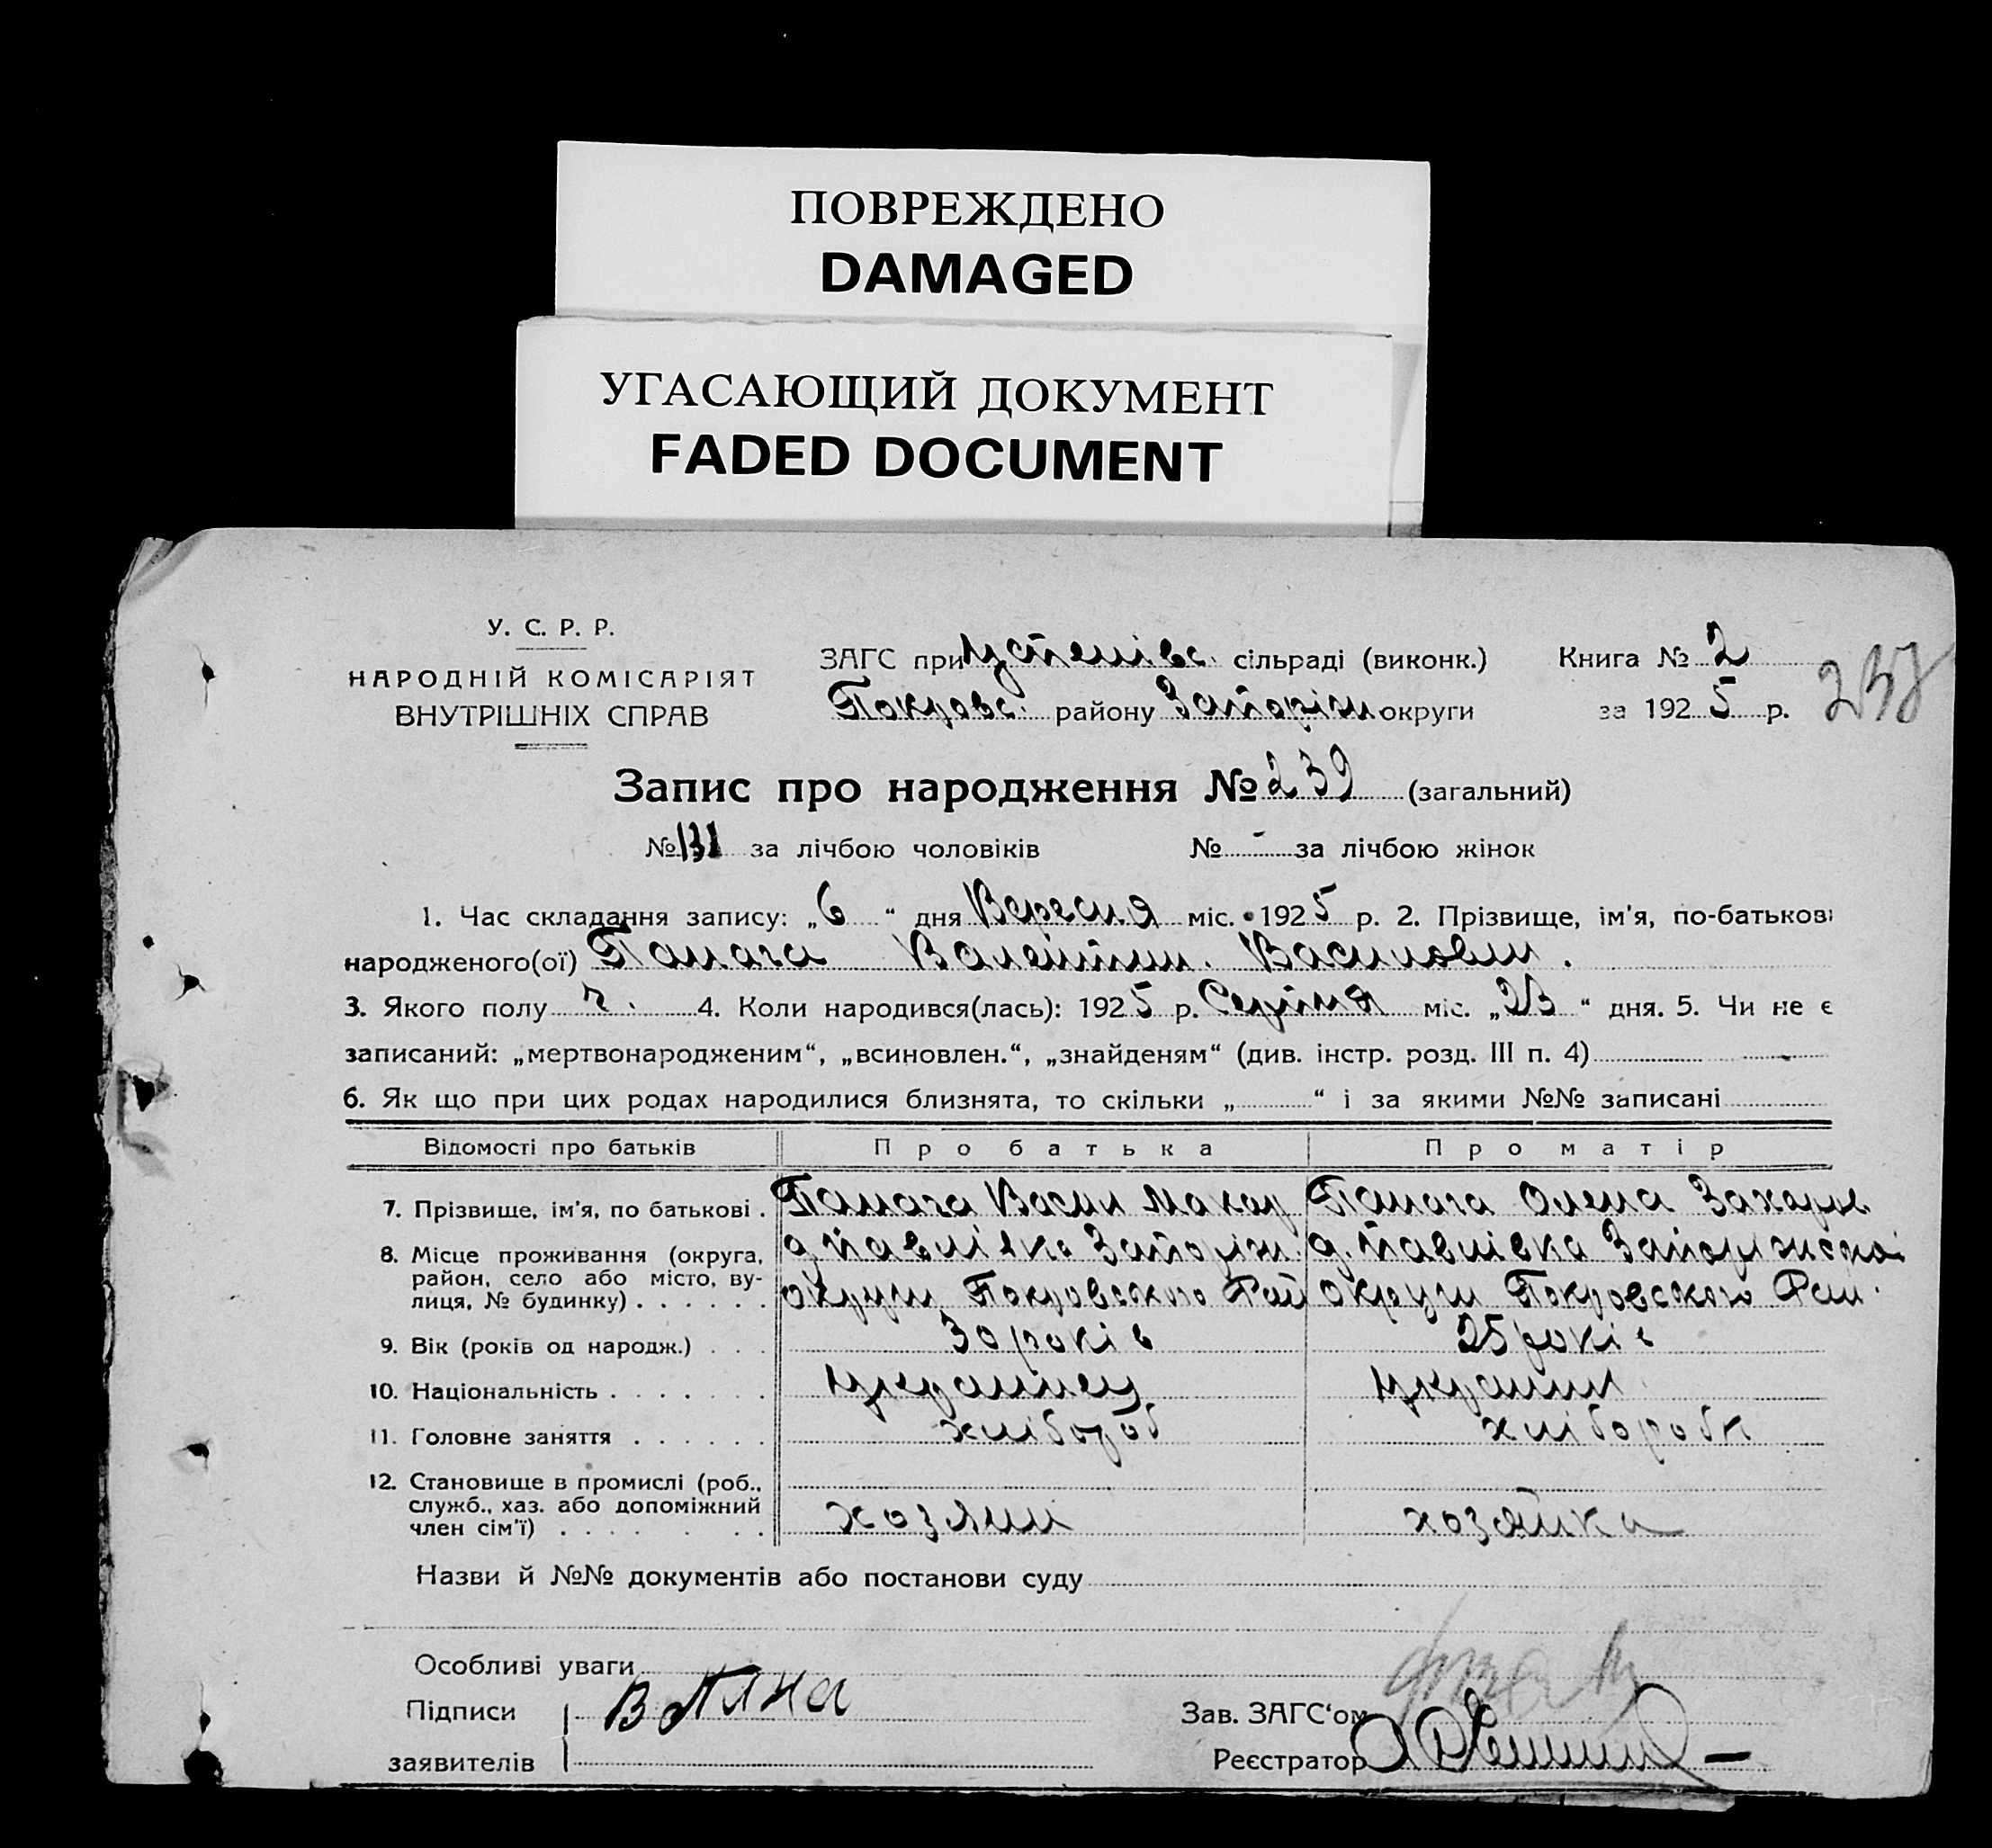 ПОВРЕЖДЕНО
DAMAGED
УГАСАЮЩИЙ ДОКУМЕНТ
FADED DOCUMENT
У. С. Р. Р.
НАРОДНІЙ КОМІСАРІЯТ
ВНУТРІШНІХ СПРАВ
ЗАГС при Успенівс. сільраді (виконк.)
Покровс. району Запоріж округи
Книга № 2
за 1925 р.
Запис про народження № 239 (загальний)
№ 131 за лічбою чоловіків № - за лічбою жінок
1. Час складання запису: „6“ дня Вересня міс. 1925 р. 2. Прізвище, ім'я, по-батькові
народженого(ої) Валентин. Василович.
3. Якого полу ч. 4. Коли народився(лась): 1925 р. Серпня міс. „23“ дня. 5. Чи не є
записаний: „мертвонародженим“, „всиновлен.“, „знайденям“ (див. інстр. розд. III п. 4) -
6. Як що при цих родах народилися близнята, то скільки „ “ і за якими №№ записані
Відомості про батьків Про батька Про матір
7. Прізвище, ім'я, по батькові . Васил Макар Олена Захаров
8. Місце проживання (округа, район, село або місто, вулиця, № будинку) . . . . . .
д. Павлівка Запоріж. д. Павлівка Запоріжської
округи Покровського Рай округи Покровського Рай.
9. Вік (років од народж.) . . . 30 років 25 років
10. Національність . . . . . . . Українец Украинк
11. Головне заняття . . . . . . хлібороб хліборобк
12. Становище в промислі (роб., служб., хаз. або допоміжний член сім'ї) . . . . . . . хозяин хозяйка
Назви й №№ документів або постанови суду
Особливі уваги
Підписи
заявителів
Зав. ЗАГС'ом
Реєстратор